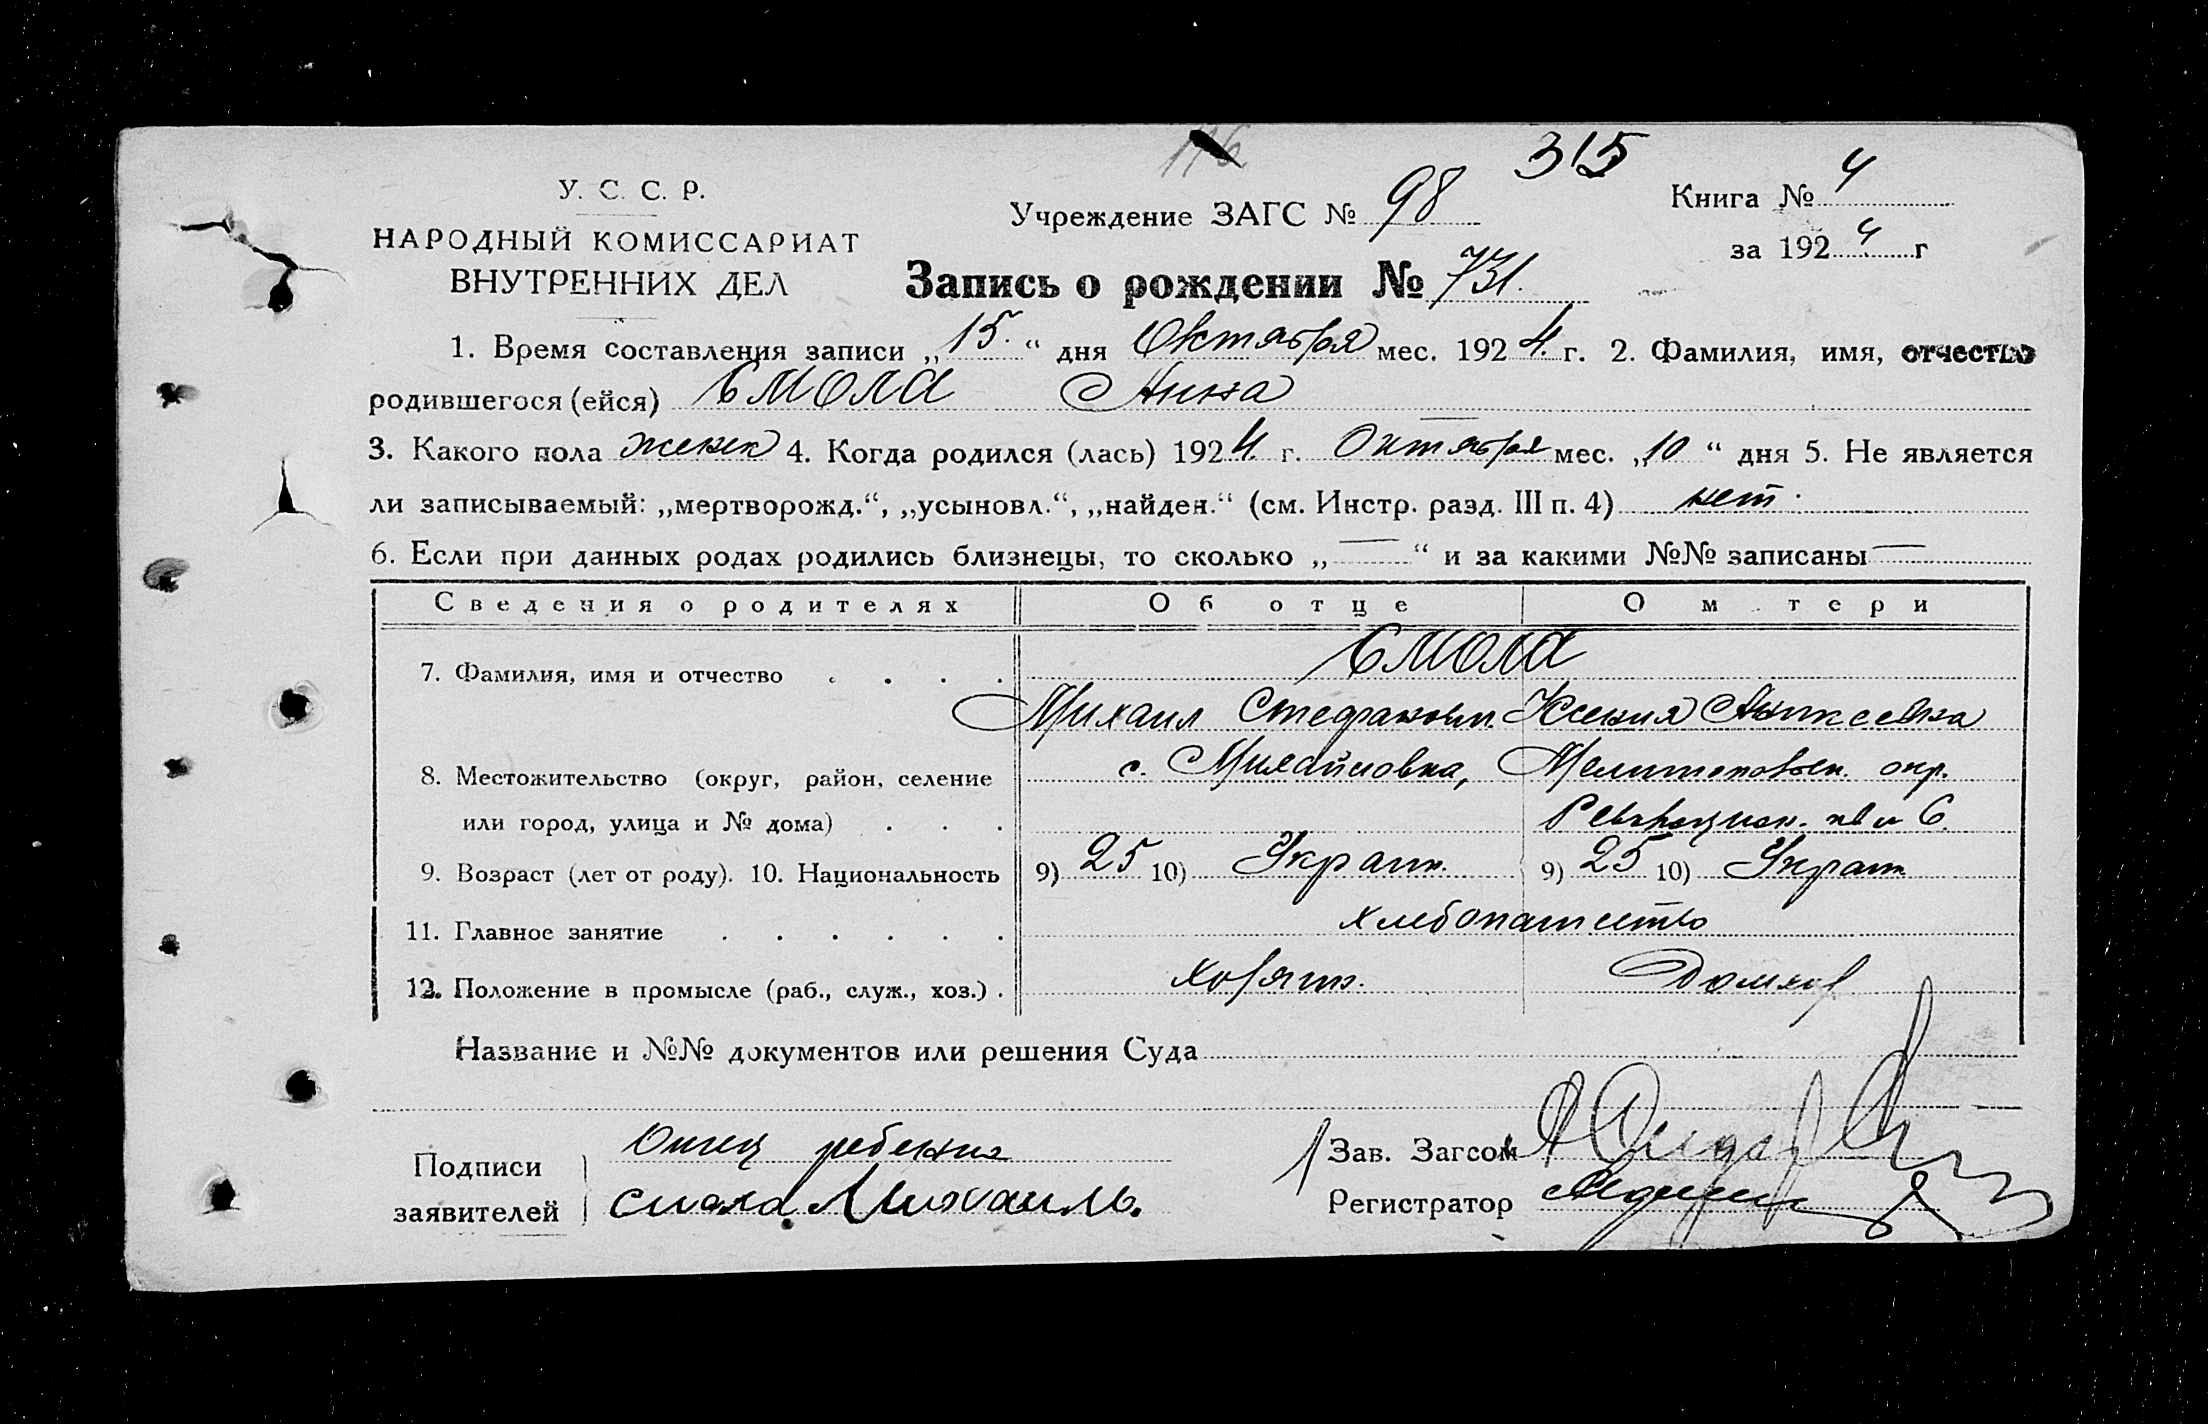 315
У. С. С. Р.
НАРОДНЫЙ КОМИССАРИАТ
ВНУТРЕННИХ ДЕЛ
Учреждение ЗАГС № 98
Книга № 4
за 1924 г
Запись о рождении № 731.
1. Время составления записи „15.“ дня Октября мес. 1924. г. 2. Фамилия, имя, отчество
родившегося (ейся) Смола Анна
3. Какого пола женск 4. Когда родился (лась) 1924. г. Октября мес. „10“ дня 5. Не является
ли записываемый: „мертворожд.“, „усыновл.“, „найден.“ (см. Инстр. разд. III п. 4) нет.
6. Если при данных родах родились близнецы, то сколько „—“ и за какими №№ записаны —
Сведения о родителях Об отце О м тери
7. Фамилия, имя и отчество . . . . Смола
Михаил Стефанов. Ксения
8. Местожительство (округ, район, селение с. Михайловка, Мелитопольск. окр.
или город, улица и № дома) . . . 6.
9. Возраст (лет от роду). 10. Национальность 9) 25 10) Украин. 9) 25 10) Украин
11. Главное занятие . . . . . . хлебопашество
12. Положение в промысле (раб., служ., хоз.) . хозяин. Домхоз
Название и №№ документов или решения Суда
Подписи заявителей Отец ребенка
смола Михаиль.
Зав. Загсом
Регистратор